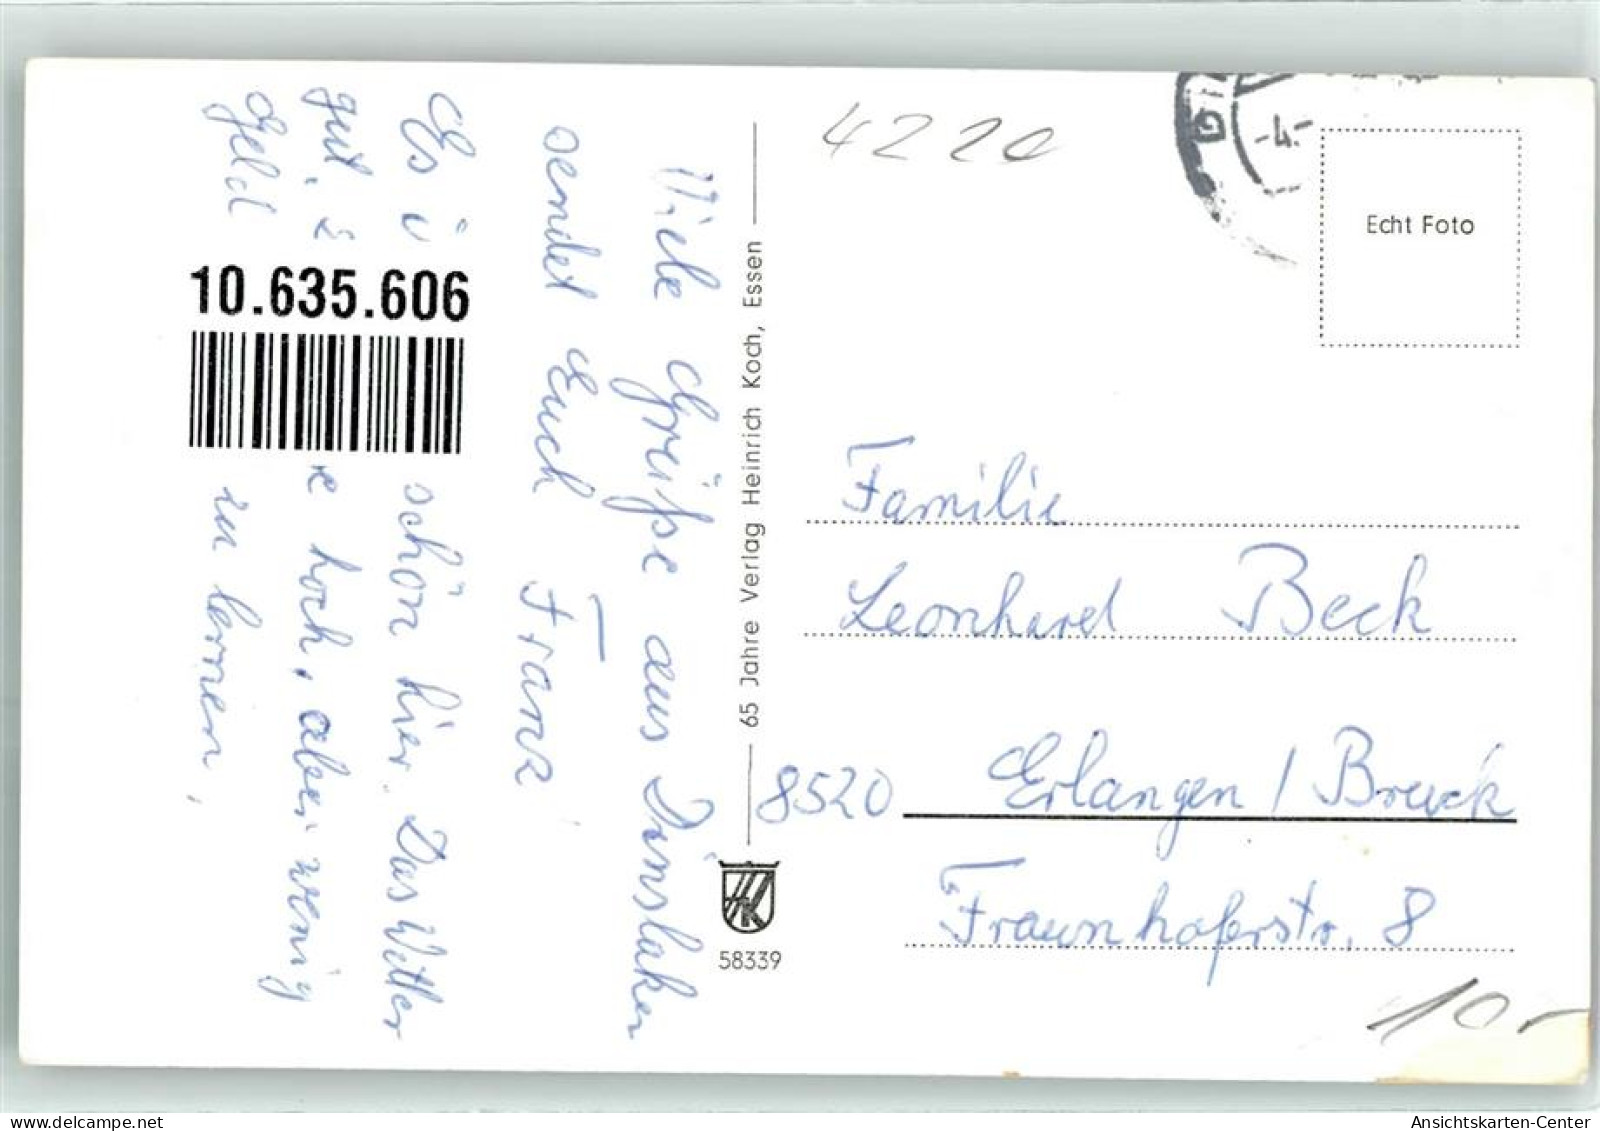 Viele Grüße aus Dinslaken
sendet Euch Franz
Es schön hier. Das Wetter
gut, hoch, aber wenig
Geld zu lernen,
10.635.606
65 Jahre Verlag Heinrich Koch, Essen
HK
58339
4220
-4.-
Echt Foto
Familie
Leonhard Beck
8520 Erlangen / Bruck
Fraunhoferstr. 8
10,-
Ansichtskarten-Center